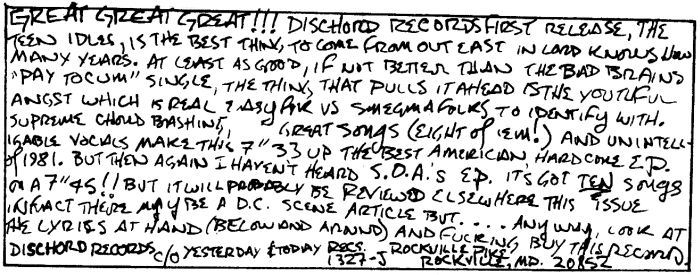 GREAT GREAT GREAT!!! DISCHORD RECORDS FIRST RELEASE, THE
TEEN IDLES, IS THE BEST THING TO COME FROM OUT EAST IN LORD KNOWS HOW
MANY YEARS. AT LEAST AS GOOD, IF NOT BETTER THAN THE BAD BRAINS
"PAY TO CUM" SINGLE, THE THING THAT PULLS IT AHEAD IS THE YOUTHFUL
ANGST WHICH IS REAL EASY FOR US SMEGMA FOLKS TO IDENTIFY WITH.
SUPREME CHORD BASHING, GREAT SONGS (EIGHT of 'EM!) AND UNINTELL-
IGABLE VOCALS MAKE THIS 7" 33 UP THE BEST AMERICAN, HARDCORE E.P.
of 1981. BUT THEN AGAIN I HAVEN'T HEARD S.O.A.'s E.P. IT'S GOT TEN SONGS
ON A 7" 45!! BUT IT WILL PROBABLY BE REVIEWED ELSEWHERE THIS ISSUE
INFACT THERE MAY BE A D.C. SCENE ARTICLE BUT..... ANYWAY, LOOK AT
THE LYRICS AT HAND (BELOW AND AROUND) AND FUCKING BUY THIS RECORD.
DISCHORD RECORDS c/o YESTERDAY & TODAY RECS. ROCKVILLE PIKE
1327-J ROCKVILLE, MD. 20852